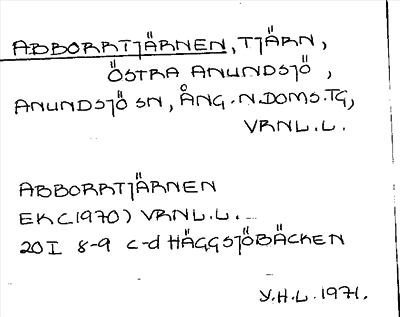 ABBORRTJÄRNEN, TJÄRN,
ÖSTRA ANUNDSJÖ,
ANUNDSJÖ SN, ÅNG.N.DOMS.TG,
VRNL.L.
ABBORRTJÄRNEN
EK(1970) VRNL.L.
20I 8-9 c-d HÄGGSJÖBÄCKEN
Y.H.L. 1971.